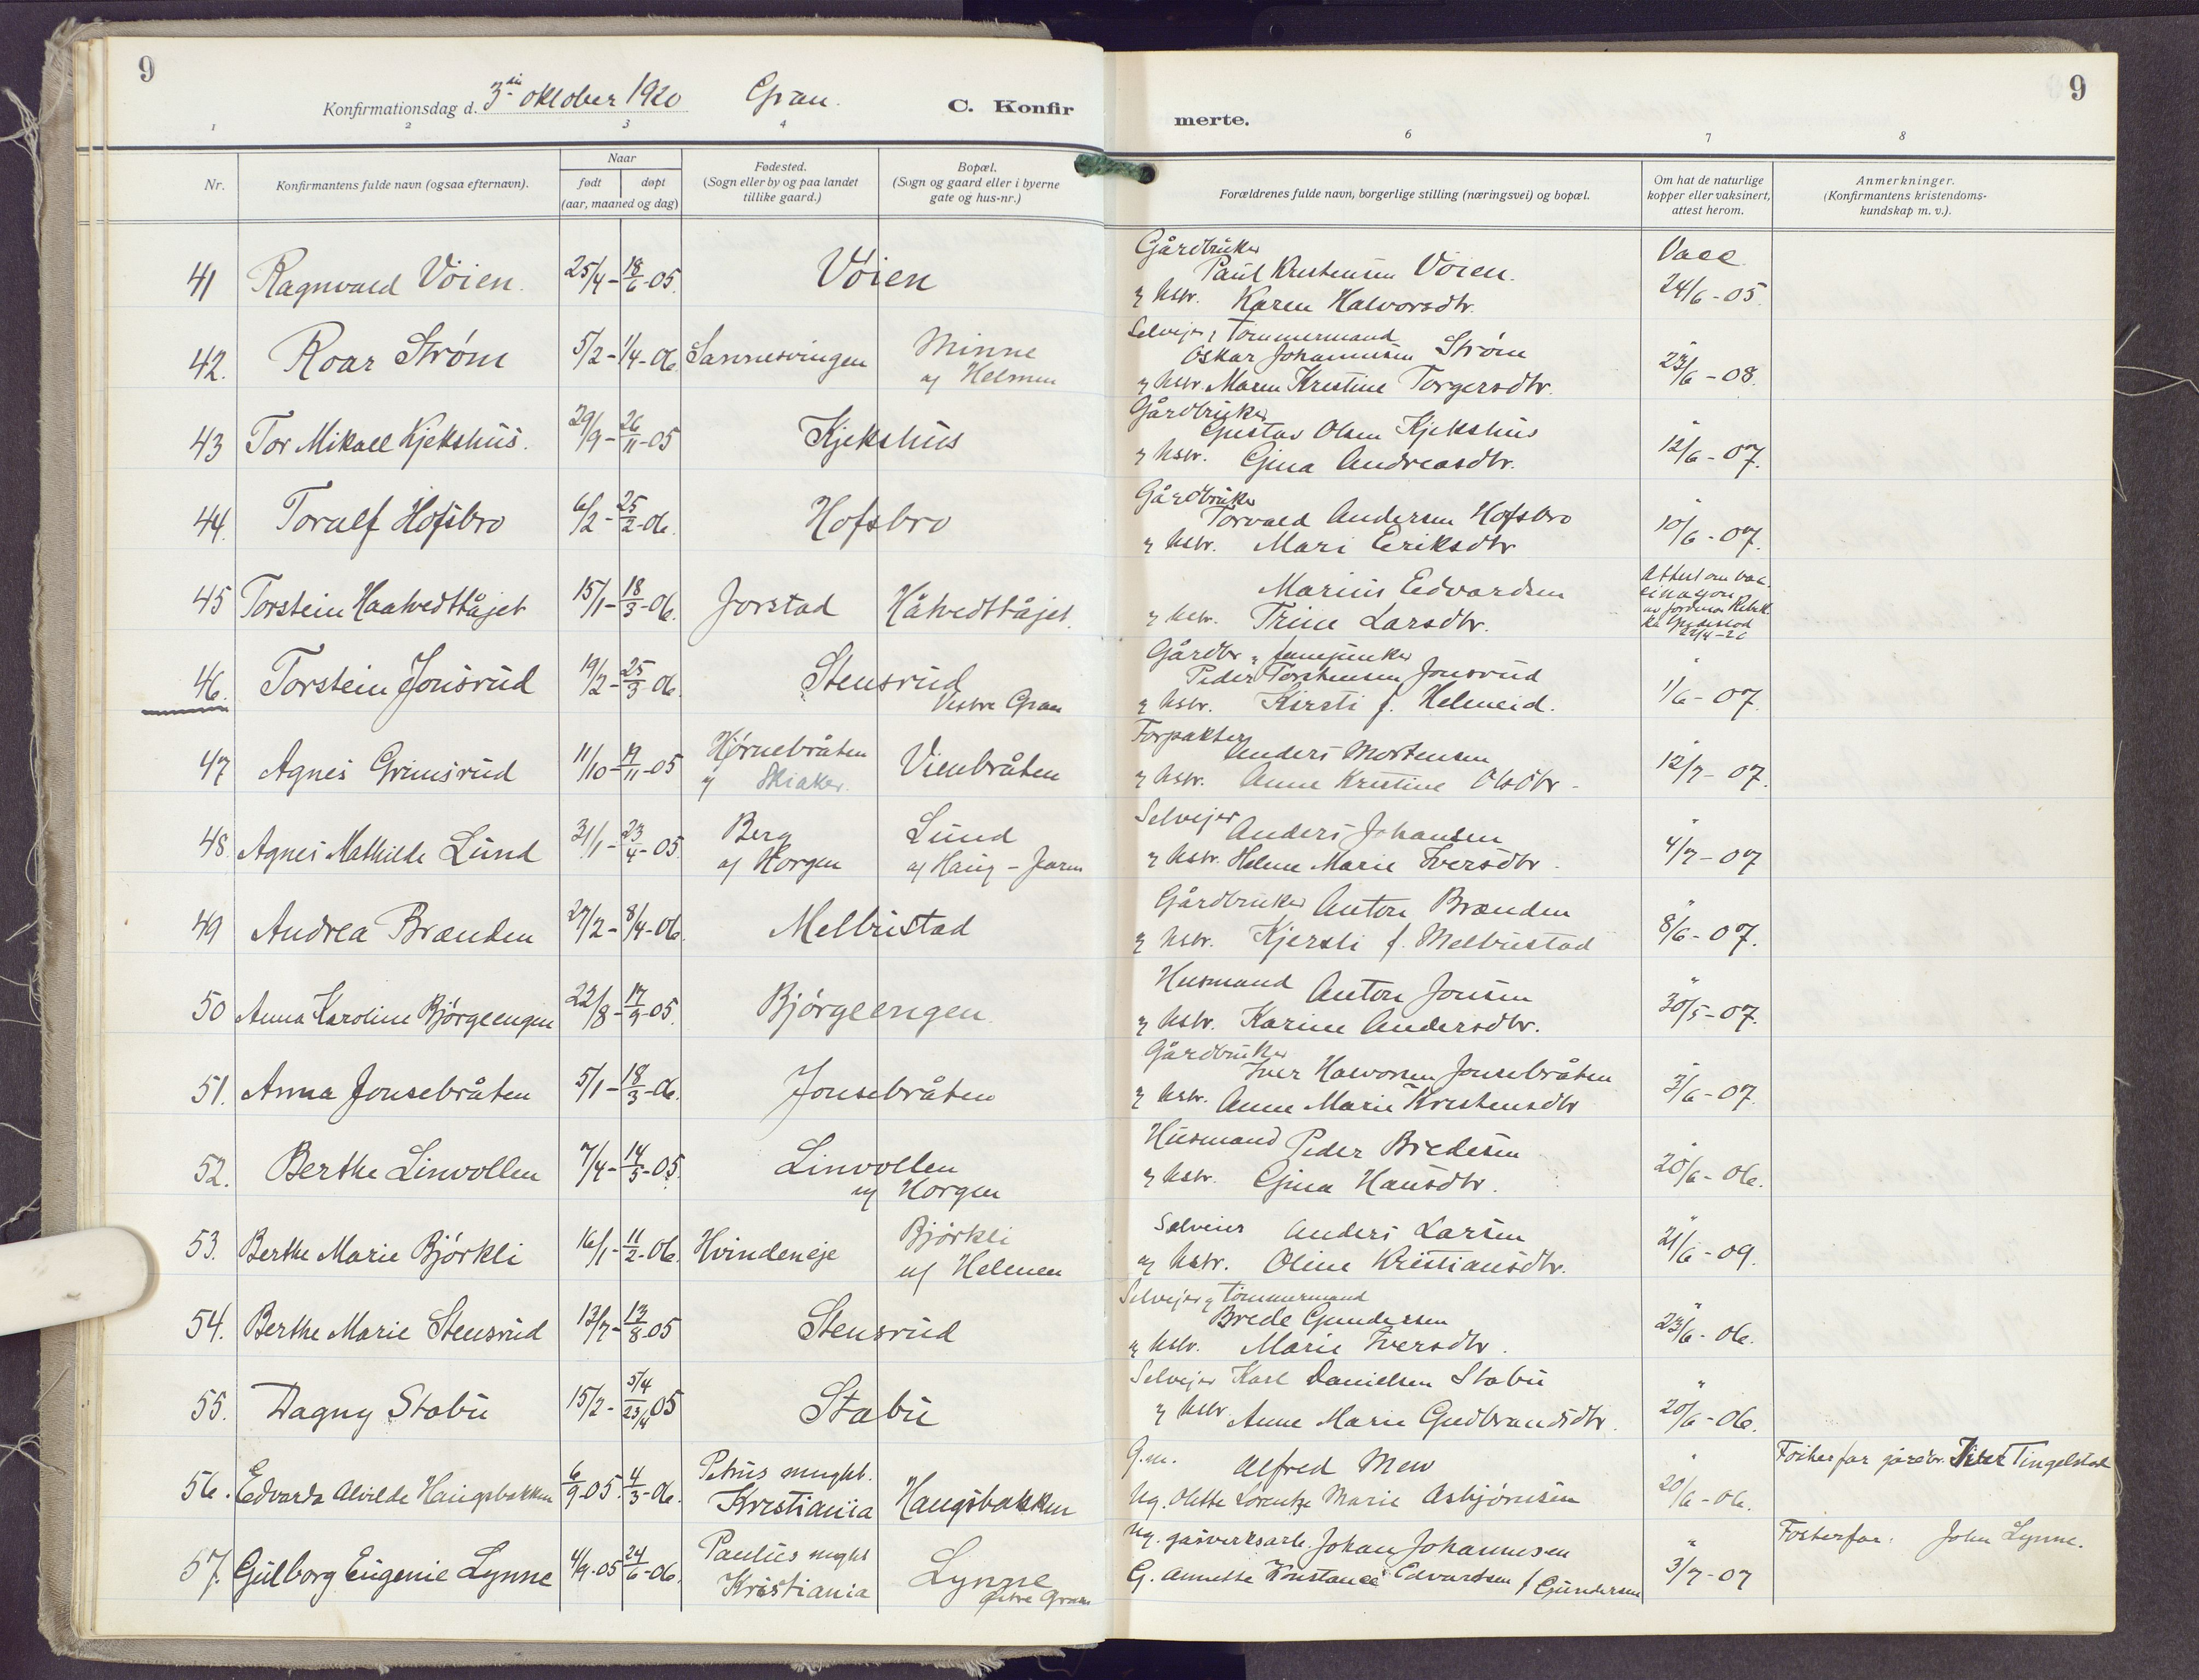 9
Konfirmationsdag d. 3die oktober 1920 Gran. C. Konfir
1 2 3 4
Nr.
Konfirmantens fulde navn (ogsaa efternavn).
Naar
født døpt
(aar, maaned og dag)
Fødested.
(Sogn eller by og paa landet
tillike gaard.)
Bopæl.
(Sogn og gaard eller i byerne
gate og hus-nr.)
9
merte.
6 7 8
Forældrenes fulde navn, borgerlige stilling (næringsvei) og bopæl.
Om hat de naturlige
kopper eller vaksinert,
attest herom.
Anmerkninger.
(Konfirmantens kristendoms-
kundskap m. v.).
41 Ragnvald Vöien. 25/4 - 18/6 - 05. Vöien
Gårdbruker
Paul Kristensen Vöien.
og hstr. Karen Halvorsdtr.
Vacc.
24/6 - 05.
42. Roar Strøm 5/2 - 1/4 - 06. Sannesvingen Minne
af Helmen
Selvejer, Tömmermand
Oskar Johannesen Ström
og hstr. Maren Kristine Torgersdtr.
" 23/6 - 08.
43 Tor Mikael Kjekshus. 29/9 - 26/11 - 05 Kjekshus
Gårdbruker
Gustav Olsen Kjekshus
og hstr. Gina Andreasdtr.
" 12/6 - 07.
44. Toralf Hofsbro 6/2 - 25/2 - 06. Hofsbro
Gårdbruker
Torvald Andersen Hofsbro
og hstr. Mari Eriksdtr
" 10/6 - 07.
45 Torstein Haatvedttåjet 15/1 - 18/3 - 06. Jorstad Håtvedttåjet.
Marius Edvardsen
og hstr. Trine Larsdtr.
Attest om vac-
cination
av jordmor
22/4 - 20
46. Torstein Jonsrud 19/2 - 25/3 - 06. Stensrud
Vestre Gran
Gårdbr. og fanejunker
Peder Torstensen Jonsrud
og hstr. Kirsti f. Helmeid.
" 1/6 - 07.
47 Agnes Grinsrud 11/10 - 19/11 - 05 Hjørnebråten
af Skiaker. Vienbråten
Forpakter
Anders Mortensen
og hstr. Anne Kristine Olsdtr -
" 12/7 - 07.
48. Agnes Mathilde Lund 31/1 - 23/4 - 05. Berg
af Horgen Lund
af Haug - Jaren
Selvejer
Anders Johansen
og hstr. Helene Marie Iversdtr.
" 4/7 - 07
49 Andrea Brænden 27/2 - 8/4 - 06. Melbustad
Gårdbruker Anton Brænden
og hstr. Kjersti f. Melbustad
" 8/6 - 07.
50 Anna Karoline Bjørgeengen 22/8 - 17/9 - 05. Bjørgeengen.
Husmand Anton Jonsen
og hstr. Karine Andersdtr.
" 30/5 - 07.
51. Anna Jonsebråten 5/1 - 18/3 - 06. Jonsebråten
Gårdbruker
Iver Halvorsen Jonsebråten
og hstr. Anne Marie Kristensdtr
" 3/6 - 07.
52. Berthe Linvollen 7/4 - 14/5 - 05. Linvollen
af Horgen
Husmand Peder Bredesen
og hstr. Gina Hansdtr.
" 20/6 - 06.
53. Berthe Marie Bjørkli 16/1 - 11/2 - 06. Hvindeneje Bjørkli
af Helmen
Selveier Anders Larsen
og hstr. Oline Kristiansdtr.
" 21/6 - 09.
54. Berthe Marie Stensrud 13/7 - 13/8 - 05 Stensrud
Selvejer og Tömmermand
Brede Gundersen
og hstr. Marie Iversdtr.
" 23/6 - 06.
55. Dagny Stabu 15/2 - 5/4 23/4 05 Stabu
Selvejer Karl Danielsen Stabu
og hstr. Anne Marie Gudbrandsdtr.
" 20/6 - 06.
56. Edvarda Alvilde Haugsbakken 6/9 - 05. 4/3 - 06. Petrus mnght.
Kristiania Haugsbakken
G.m. Alfred Mew
Ug. Olette Lorentze Marie Asbjørnsen
" 20/6 - 06.
Fosterfar gårdbr. Iver Tingelstad
57. Gulborg Eugenie Lynne 4/9 - 05 24/6 - 06. Paulus mght
Kristiania Lynne
Østre Gran
Ug. gasverksarb. Johan Johannesen
G. Annette Konstance Edvardsen f. Gundersen
" 3/7 - 07
Fosterfar: John Lynne.